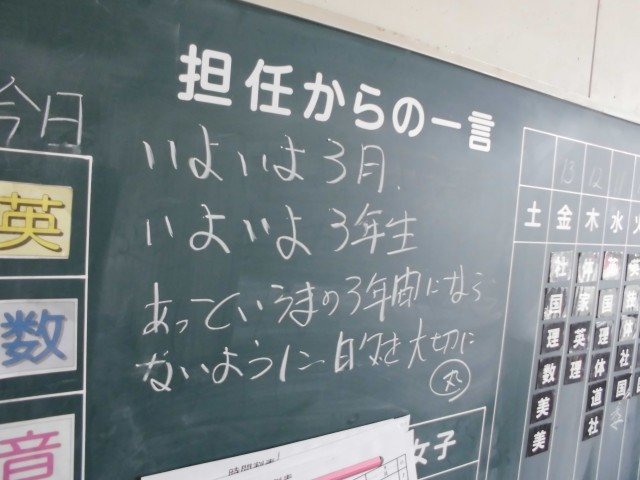 担任からの一言
今日
いよいよ3月.
いよいよ3年生
あっというまの3年間になら
ないように 日々を大切に
英
数
音
女子
時間割表
13 12 11
土 金 木 水 火
社 体
国 英 国
理 英 理
数 理 体
美 道 社
美 社 国